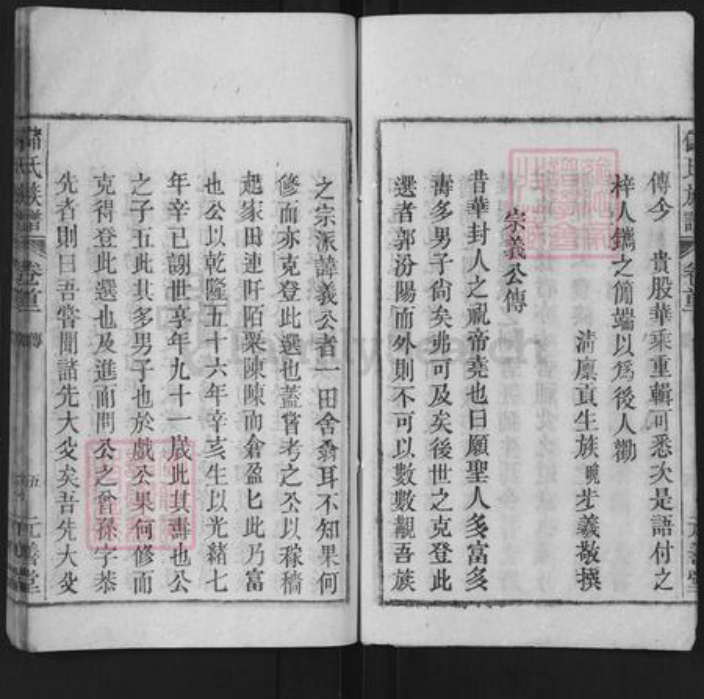 傳今 貴股華乘重輯可悉次是語付之
梓人鐫之簡端以爲後人勸
清廩貢生族晚步義敬撰
宗義公傳
昔華封人之祝帝堯也曰願聖人多富多
壽多男子尚矣弗可及矣後世之克登此
選者郭汾陽而外則不可以數數覯吾族
氏族譜
卷首
元善堂
儲氏族譜
卷首
傳
五
元善堂
之宗派諱義公者一田舍翁耳不知果何
修而亦克登此選也蓋嘗考之公以稼穡
起家田連阡陌粟陳陳而倉盈匕此乃富
也公以乾隆五十六年辛亥生以光緒七
年辛巳謝世享年九十一歲此其壽也公
之子五此其多男子也於戲公果何修而
克得登此選也及進而問公之曾孫字恭
先者則曰吾嘗聞諸先大父矣吾先大父